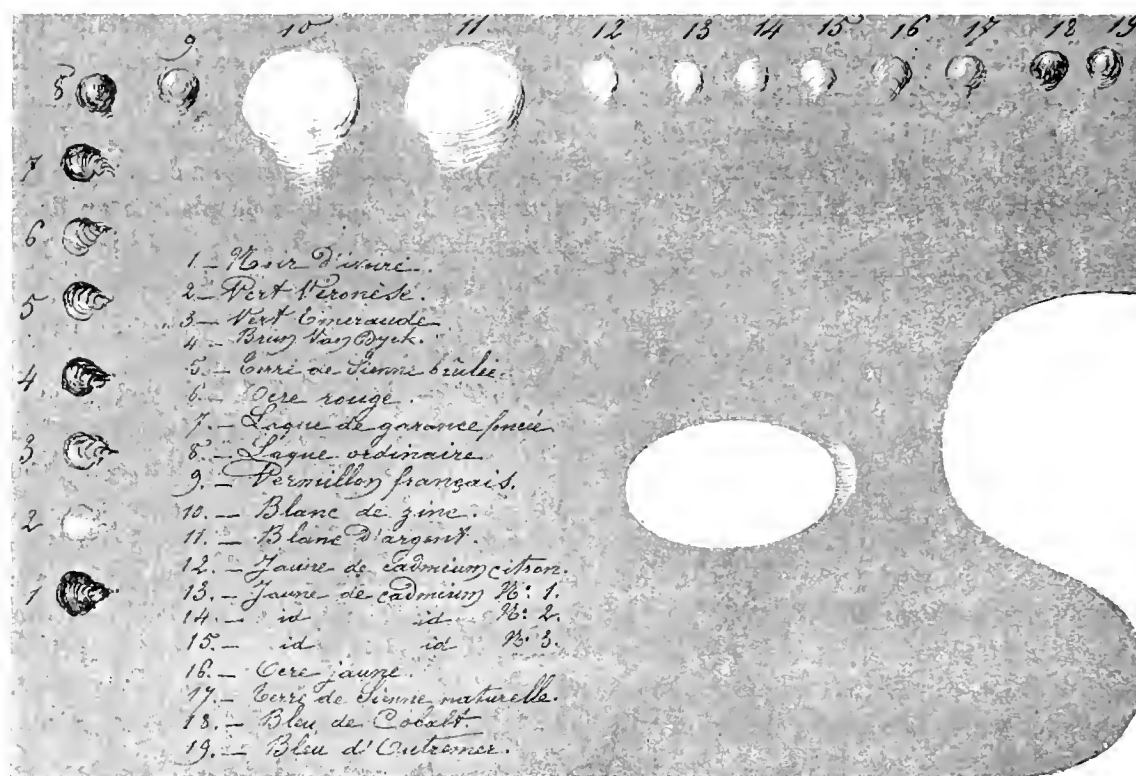 10 11 12 13 14 15 16 17 18 19
9
8
7
6
5
4
3
2
1
1 _ Noir d'ivoire.
2 _ Vert Véronèse.
3 _ Vert Emeraude
4 _ Brun Van Dyck.
5. _ Terre de Sienne brûlée.
6. _ Ocre rouge.
7. _ Laque de garance foncée
8. _ Laque ordinaire
9. _ Vermillon français.
10. _ Blanc de zinc.
11. _ Blanc d'argent.
12. _ Jaune de cadmium citron.
13. _ Jaune de cadmium No: 1.
14. _ id id No: 2.
15. _ id id No: 3.
16. _ Ocre jaune.
17. _ Terre de Sienne naturelle.
18. _ Bleu de Cobalt
19. _ Bleu d'Outremer.